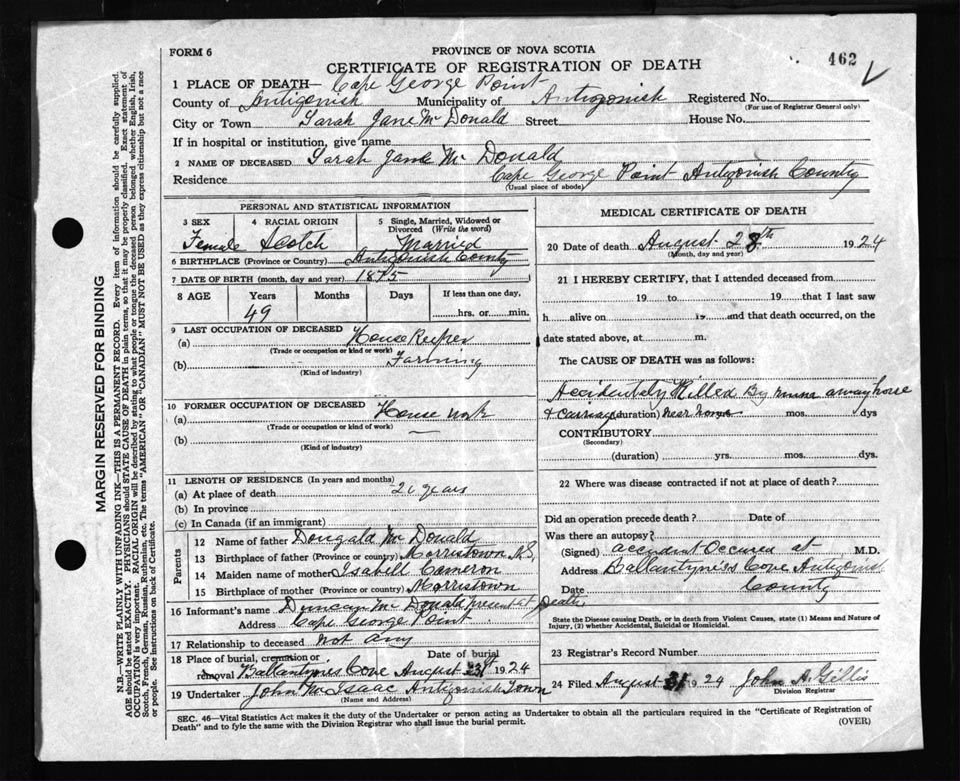 FORM 6
PROVINCE OF NOVA SCOTIA
462
CERTIFICATE OF REGISTRATION OF DEATH
1 PLACE OF DEATH— Cape George Point
County of Antigonish Municipality of Antigonish Registered No.
(For use of Registrar General only)
City or Town Sarah Jane McDonald Street House No.
If in hospital or institution, give name
2 NAME OF DECEASED Sarah Jane Mc Donald
Residence Cape George Point Antigonish County
(Usual place of abode)
PERSONAL AND STATISTICAL INFORMATION
3 SEX 4 RACIAL ORIGIN 5 Single, Married, Widowed or Divorced (Write the word)
Female Scotch Married
6 BIRTHPLACE (Province or Country) Antigonish County
7 DATE OF BIRTH (month, day and year) 1875
8 AGE Years Months Days If less than one day,
49 hrs. or min.
9 LAST OCCUPATION OF DECEASED
(a) House Keeper
(Trade or occupation or kind of work)
(b) Farming
(Kind of industry)
10 FORMER OCCUPATION OF DECEASED
(a) House work
(Trade or occupation or kind of work)
(b) —
(Kind of industry)
11 LENGTH OF RESIDENCE (In years and months)
(a) At place of death years
(b) In province
(c) In Canada (if an immigrant)
Parents
12 Name of father Dougald Mc Donald
13 Birthplace of father (Province or country) Morristown N.S.
14 Maiden name of mother Isabell Cameron
15 Birthplace of mother (Province or country) Morristown
16 Informant's name Duncan Mc Donald present at Death
Address Cape George Point
17 Relationship to deceased not any
18 Place of burial, cremation or removal Date of burial
Ballantynes Cove August 1924
19 Undertaker John McIsaac Antigonish Town
(Name and Address)
MEDICAL CERTIFICATE OF DEATH
20 Date of death August 28th 1924
(Month, day and year)
21 I HEREBY CERTIFY, that I attended deceased from
19 to 19 that I last saw
h alive on 19 and that death occurred, on the
date stated above, at m.
The CAUSE OF DEATH was as follows:
Accidentaly Killed By runn away horse
& Carriage (duration) near home mos. dys
CONTRIBUTORY
(Secondary)
(duration) yrs. mos. dys.
22 Where was disease contracted if not at place of death?
Did an operation precede death? Date of
Was there an autopsy?
(Signed) accident Occured at M.D.
Address Ballantynes Cove Antigonish
Date County
State the Disease causing Death, or in death from Violent Causes, state (1) Means and Nature of Injury, (2) whether Accidental, Suicidal or Homicidal.
23 Registrar's Record Number
24 Filed August 31 1924 John A. Gillis
Division Registrar
SEC. 46—Vital Statistics Act makes it the duty of the Undertaker or person acting as Undertaker to obtain all the particulars required in the "Certificate of Registration of
Death" and to fyle the same with the Division Registrar who shall issue the burial permit.
(OVER)
MARGIN RESERVED FOR BINDING
N.B.—WRITE PLAINLY WITH UNFADING INK—THIS IS A PERMANENT RECORD. Every item of information should be carefully supplied.
AGE should be stated EXACTLY. PHYSICIANS should STATE CAUSE OF DEATH in plain terms, so that it may be properly classified. Exact statement of
OCCUPATION is very important. RACIAL ORIGIN will be described by stating to what people or tongue the deceased person belonged whether English, Irish,
Scotch, French, German, Russian, Ruthenian, etc. The terms "AMERICAN" OR "CANADIAN" MUST NOT BE USED as they express citizenship but not a race
or people. See instructions on back of Certificate.